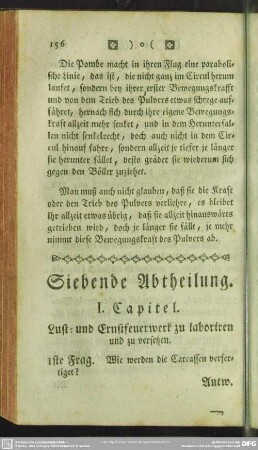 156 ) o (
Die Pombe macht in ihren Flug eine paraboli-
sche Linie, das ist, die nicht ganz im Circul herum
laufet, sondern bey ihrer erster Bewegungskrafft
und von dem Trieb des Pulvers etwas schrege auf-
fähret, hernach sich durch ihre eigene Bewegungs-
kraft allzeit mehr senket, und in dem Herunterfal-
len nicht senkelrecht, doch auch nicht in dem Cir-
cul hinauf fahre, sondern allzeit je tiefer je länger
sie herunter fället, desto gräder sie wiederum sich
gegen den Böller zuziehet.
Man muß auch nicht glauben, daß sie die Kraft
oder den Trieb des Pulvers verliehre, es bleibet
ihr allzeit etwas übrig, daß sie allzeit hinauswärts
getrieben wird, doch je länger sie fällt, je mehr
nimmt diese Bewegungskraft des Pulvers ab.
Siebende Abtheilung.
I. Capitel.
Lust- und Ernstfeuerwerk zu laboriren
und zu versetzen.
1ste Frag. Wie werden die Carcassen verfer-
tiget?
Antw.